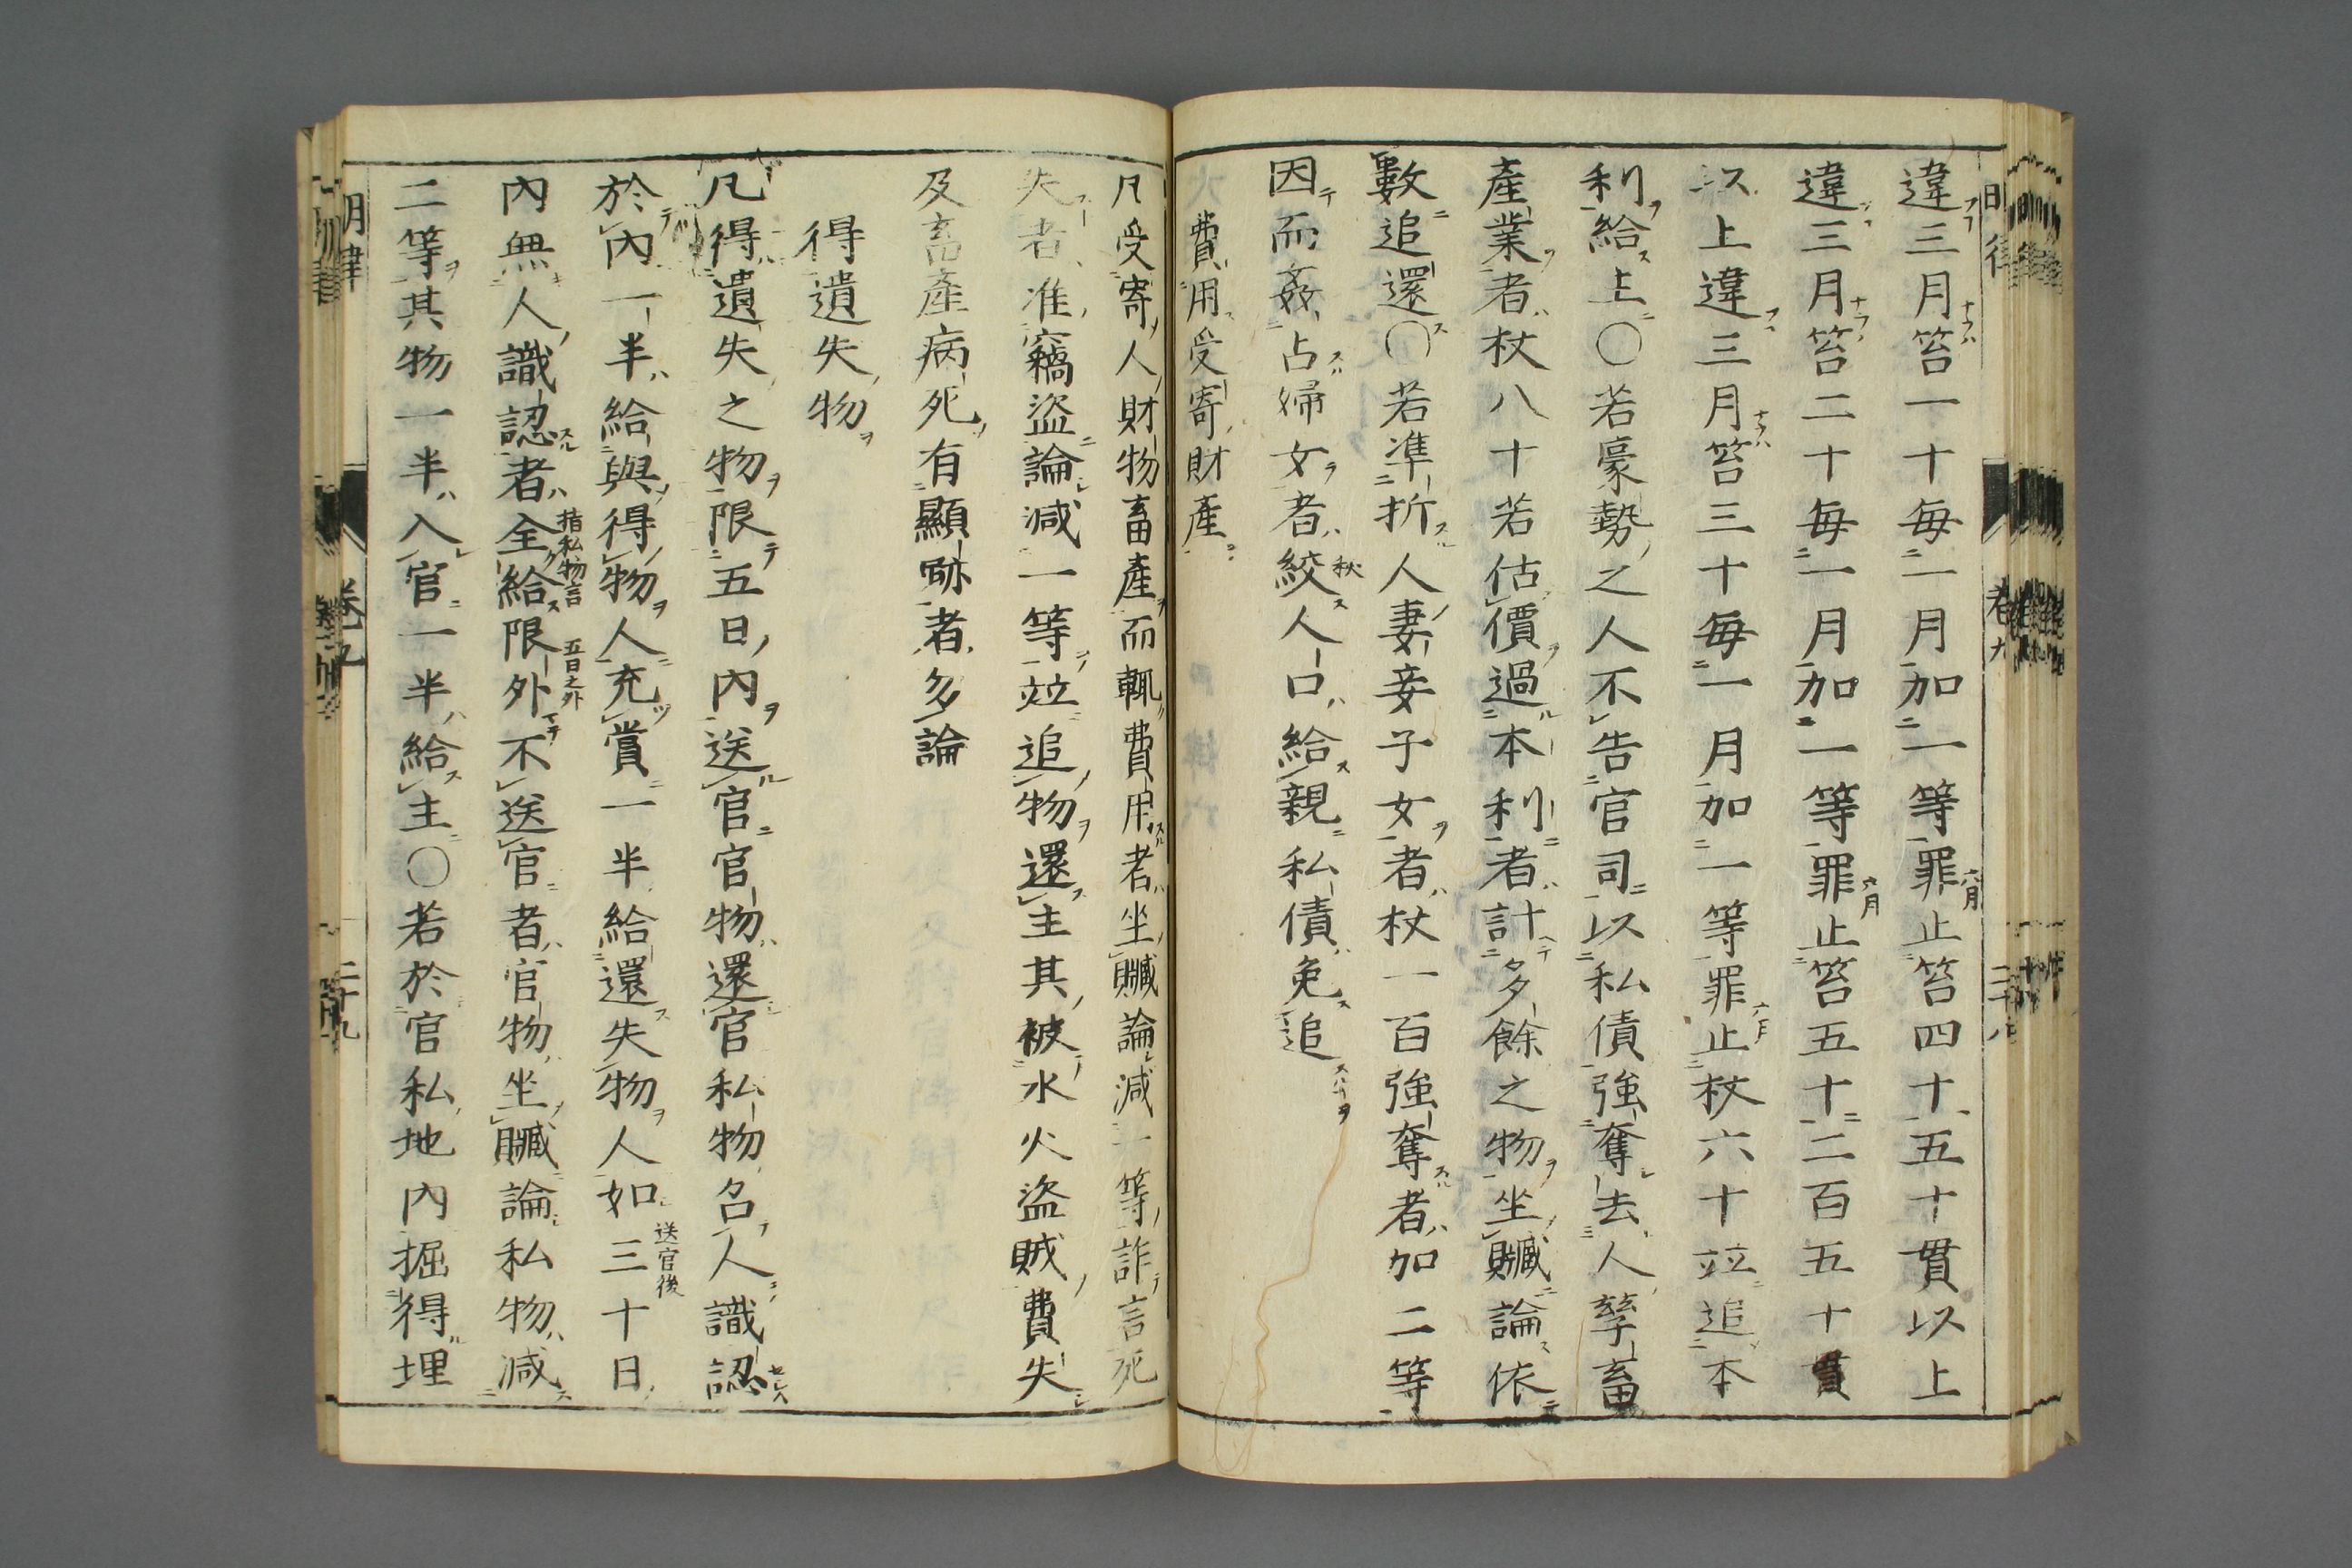 違三月笞一十每一月加一等罪止笞四十五十貫以上
違三月笞二十每一月加一等罪止笞五十二百五十貫
以上違三月笞三十每一月加一等罪止杖六十竝追本
利給主○若豪勢之人不告官司以私債強奪去人孳畜
產業者杖八十若估價過本利者計多餘之物坐贓論依
數追還○若準折人妻妾子女者杖一百強奪者加二等
因而姦占婦女者絞人口給親私債免追
費用受寄財產
凡受寄人財物畜產而輒費用者坐贓論減一等詐言死
失者准竊盜論減一等竝追物還主其被水火盜賊費失
及畜產病死有顯跡者勿論
得遺失物
凡得遺失之物限五日內送官官物還官私物召人識認
於內一半給與得物人充賞一半給還失物人如三十日
送官後
內無人識認者全給限外不送官者官物坐贓論私物減
指私物言
五日之外
二等其物一半入官一半給主○若於官私地內掘得埋
明律
卷九
二十九